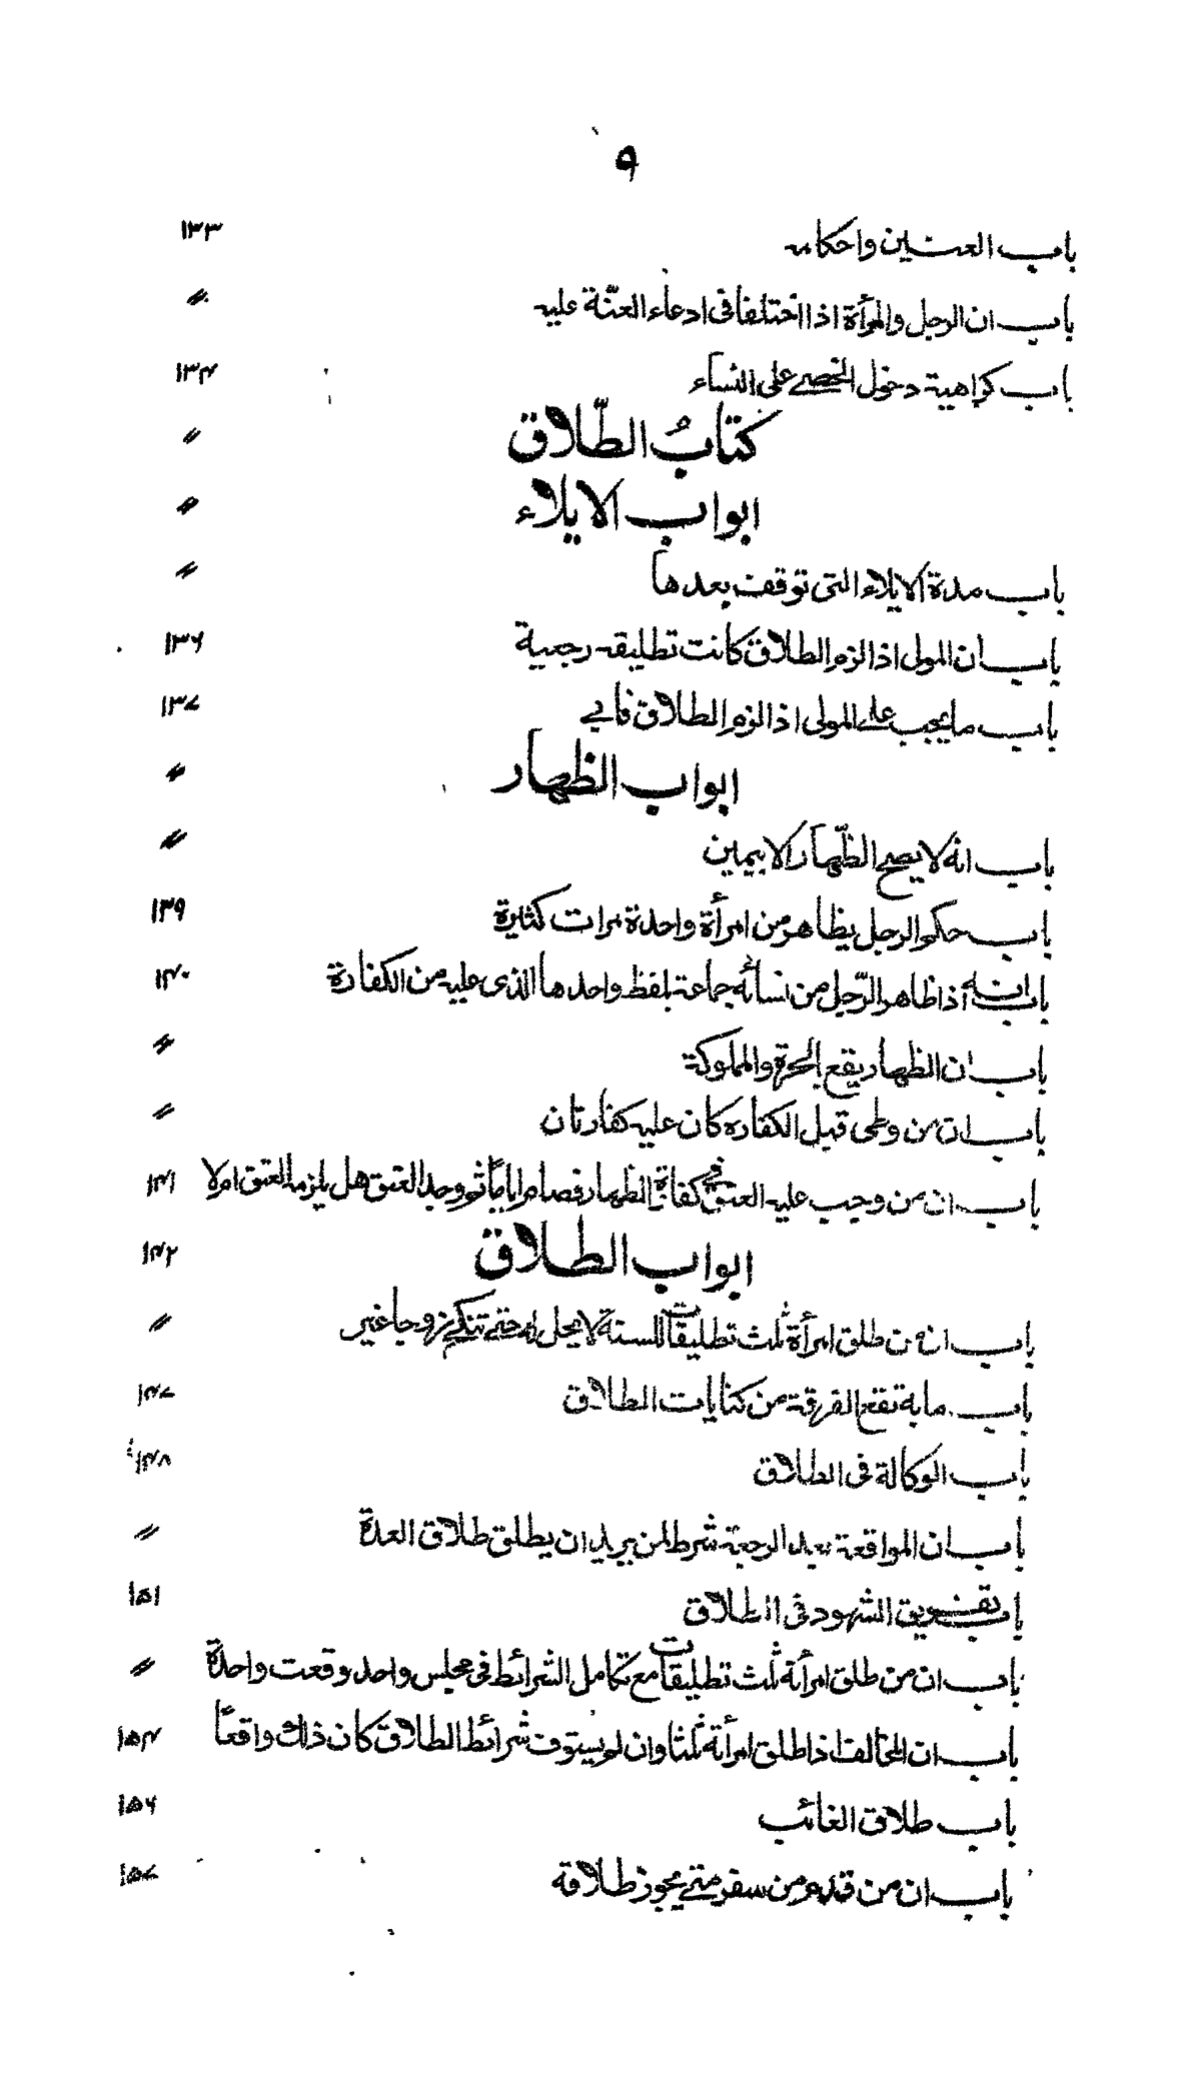 ٩
باب العنين واحكامه ١٣٣
باب ان الرجل والمرأة اذا اختلفا فى ادعاء العنّة عليه 〃
باب كراهية دخول الخصي على النساء ١٣٤
كتابُ الطّلاق 〃
ابواب الايلاء 〃
باب مدة الايلاء التى توقف بعدها 〃
باب أن المولى اذا الزم الطلاق كانت تطليقه رجعية ١٣٦
باب ما يجب على المولى اذا الزم الطلاق فابي ١٣٧
ابواب الظهار 〃
باب انه لا يصح الظّهار الا بيمين 〃
باب حكم الرجل يظاهر من امرأة واحدة مرات كثيرة ١٣٩
باب انه اذا ظاهر الرّجل من نسائه جماعة بلفظ واحد ما الذى عليه من الكفارة ١٤٠
باب ان الظهار يقع بالحرة والمملوكة 〃
باب ان من وطى قبل الكفاره كان عليه كفارتان 〃
باب ان من وجب عليه العتق في كفارة الظهار فصام اياماً ثم وجد العتق هل يلزمه العتق ام لا ١٤١
ابواب الطلاق ١٤٢
باب ان من طلق امرأة ثلث تطليقات للسنة لا يحل له حتى تنكح زوجا غيره 〃
باب ما به تقع الفرقة من كنايات الطلاق ١٤٧
باب الوكالة فى الطلاق ١٤٨
باب ان المواقعة بعد الرجعة شرط لمن يريد ان يطلق طلاق العدة 〃
باب تفريق الشهود فى الطلاق ١٥١
باب ان من طلق امرأة ثلث تطليقات مع تكامل الشرائط فى مجلس واحد وقعت واحدة 〃
باب ان المخالف اذا طلق امرأته ثلثا وان لم يستوف شرائط الطلاق كان ذلك واقعاً ١٥٤
باب طلاق الغائب ١٥٦
باب ان من قدم من سفر متى يجوز طلاقه ١٥٧